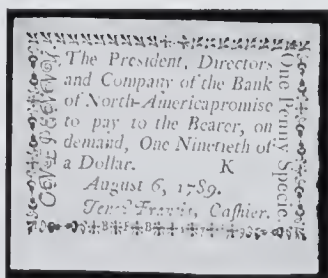 The President, Directors
and Company of the Bank
of North-America promise
to pay to the Bearer, on
demand, One Ninetieth of
a Dollar. K
August 6, 1789.
Francis, Cashier.
One Penny Specie